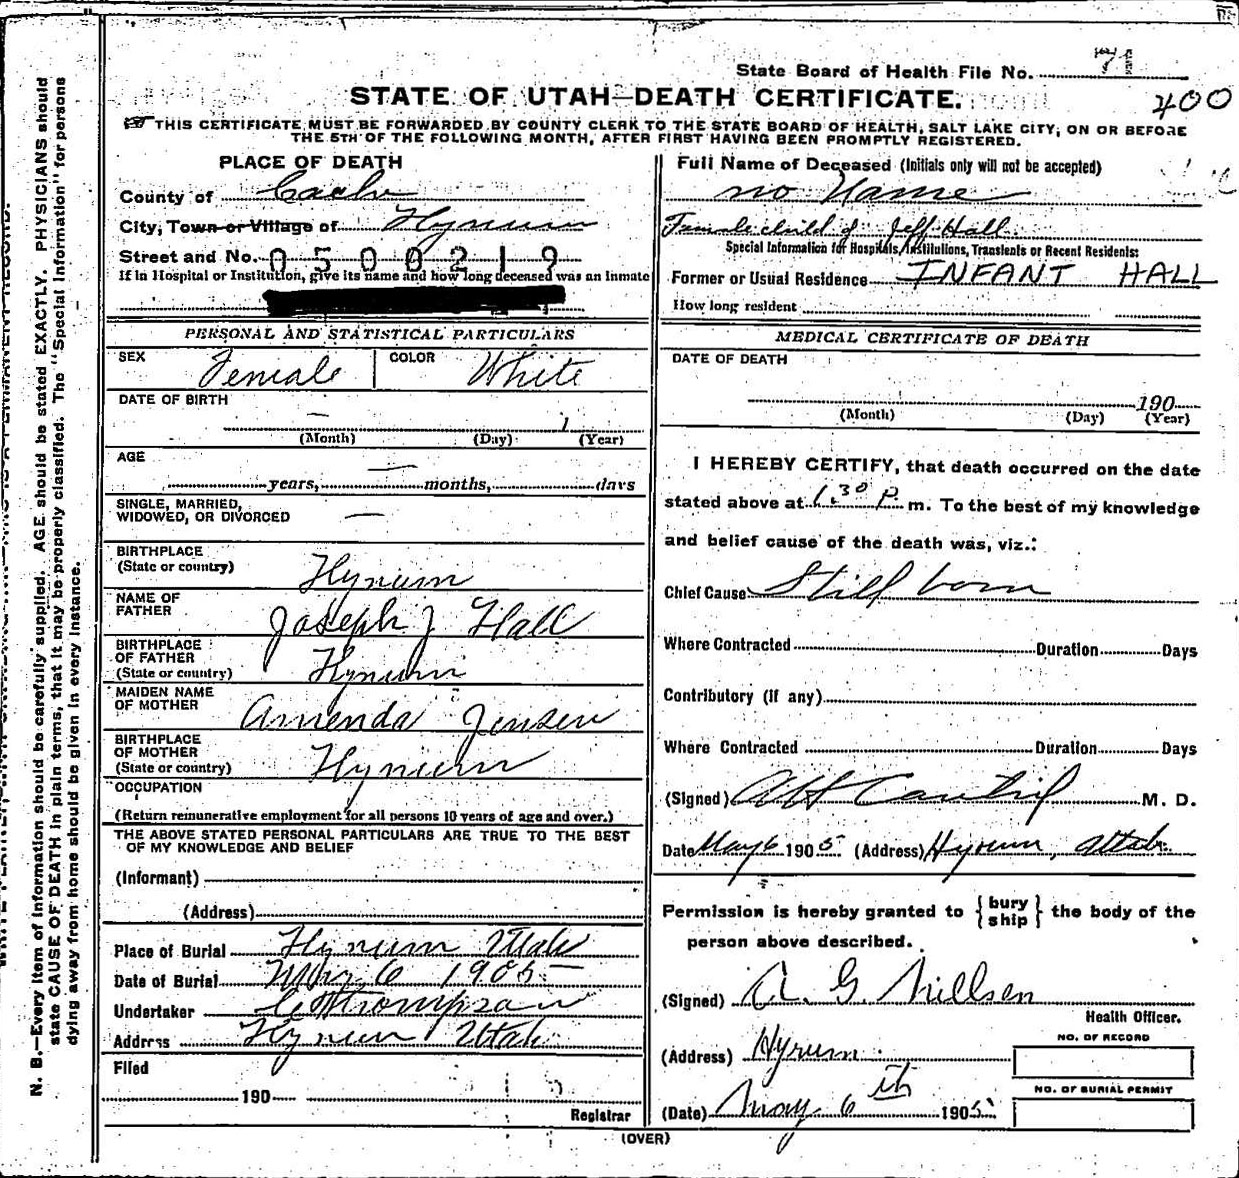 State Board of Health File No. 71
400
STATE OF UTAH—DEATH CERTIFICATE.
THIS CERTIFICATE MUST BE FORWARDED BY COUNTY CLERK TO THE STATE BOARD OF HEALTH, SALT LAKE CITY, ON OR BEFORE
THE 5TH OF THE FOLLOWING MONTH, AFTER FIRST HAVING BEEN PROMPTLY REGISTERED.
PLACE OF DEATH
County of Cache
City, Town or Village of Hyrum
Street and No. 0500219
If in Hospital or Institution, give its name and how long deceased was an inmate
Full Name of Deceased (Initials only will not be accepted)
no Name
Female child of Jeff Hall
Special Information for Hospitals, Institutions, Transients or Recent Residents:
Former or Usual Residence INFANT HALL
How long resident
PERSONAL AND STATISTICAL PARTICULARS
SEX Female COLOR White
DATE OF BIRTH —
1
(Month) (Day) (Year)
AGE —
years, months, days
SINGLE, MARRIED,
WIDOWED, OR DIVORCED —
BIRTHPLACE
(State or country) Hyrum
NAME OF
FATHER Joseph J Hall
BIRTHPLACE
OF FATHER
(State or country) Hyrum
MAIDEN NAME
OF MOTHER Amenda Jensen
BIRTHPLACE
OF MOTHER
(State or country) Hyrum
OCCUPATION
(Return remunerative employment for all persons 10 years of age and over.)
THE ABOVE STATED PERSONAL PARTICULARS ARE TRUE TO THE BEST
OF MY KNOWLEDGE AND BELIEF
(Informant)
(Address)
Place of Burial Hyrum Utah
Date of Burial May 6 1905
Undertaker Thompson
Address Hyrum Utah
Filed
190
Registrar
MEDICAL CERTIFICATE OF DEATH
DATE OF DEATH
190
(Month) (Day) (Year)
I HEREBY CERTIFY, that death occurred on the date
stated above at 1.30 P. m. To the best of my knowledge
and belief cause of the death was, viz.:
Chief Cause Still born
Where Contracted Duration Days
Contributory (if any)
Where Contracted Duration Days
(Signed) M. D.
Date May 6 1905 (Address) Hyrum, Utah
Permission is hereby granted to { bury
ship } the body of the
person above described.
(Signed) A. G. Nillsen
Health Officer.
(Address) Hyrum
NO. OF RECORD
NO. OF BURIAL PERMIT
(Date) May 6th 1905
(OVER)
N. B.—Every item of information should be carefully supplied. AGE should be stated EXACTLY. PHYSICIANS should
state CAUSE OF DEATH in plain terms, that it may be properly classified. The "Special Information" for persons
dying away from home should be given in every instance.